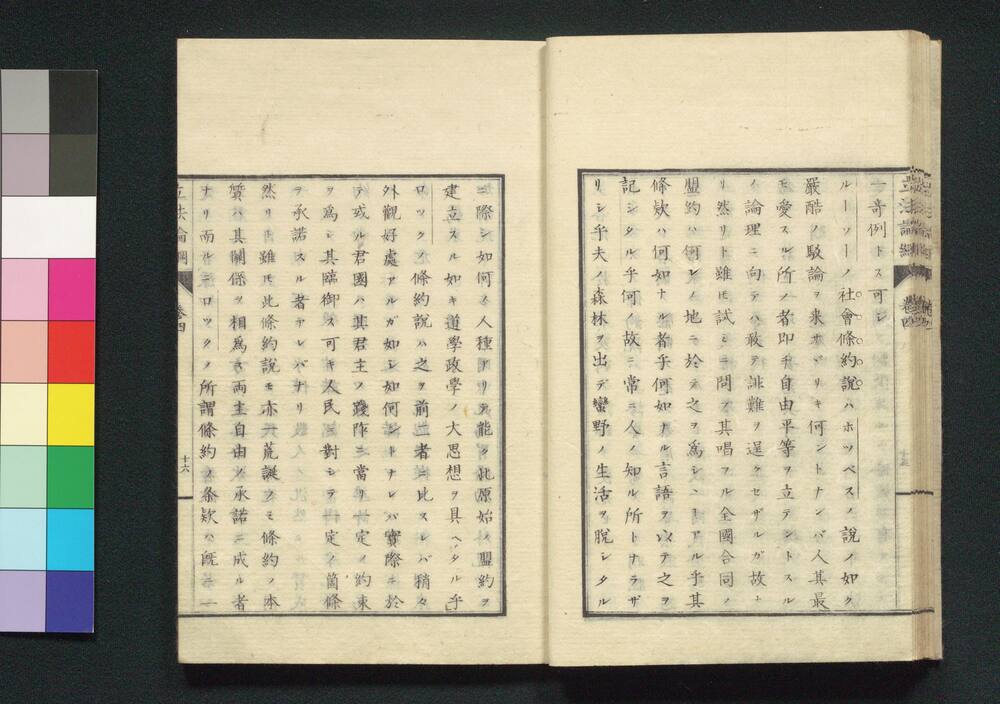 一奇例トス可シ
ルーソーノ社會條約說ハホツベスノ說ノ如ク
嚴酷ノ駁論ヲ來サヾリキ何ントナレバ人其最
モ愛スル所ノ者即チ自由平等ヲ立テントスル
ノ論理ニ向テハ敢テ誹難ヲ逞クセザルガ故ナ
リ然リト雖モ試ミニ問フ其唱フル全國合同ノ
盟約ハ何レノ地ニ於テ之ヲ為シヽーアル乎其
條欵ハ何如ナル者乎何如ナル言語ヲ以テ之ヲ
記シタル乎何ノ故ニ常ニ人ノ知ル所トナラザ
リシ乎夫ノ森林ヲ出デ蠻野ノ生活ヲ脫シタル
ニ際シ如何ノ人種アリテ能ク此原始ノ盟約ヲ
建立スル如キ道學政學ノ大思想ヲ具ヘタル乎
ロックノ條約說ハ之ヲ前二者ニ比スレバ稍々
外觀好處アルガ如シ如何ントナレバ實際ニ於
テ或ル君國ハ其君主ノ踐阼ニ當リ定ノ約束
ヲ為シ其臨御ス可キ人民ニ對シテ特定ノ箇條
ヲ承諾スル者アレバナリ
然リト雖モ此條約說モ亦一荒誕ノミ條約ノ本
質ハ其關係ヲ相為ス兩主自由ノ承諾ニ成ル者
ナリ而ルニロックノ所謂條約ノ条欵ハ既ニ一
立法論綱
卷四
十六